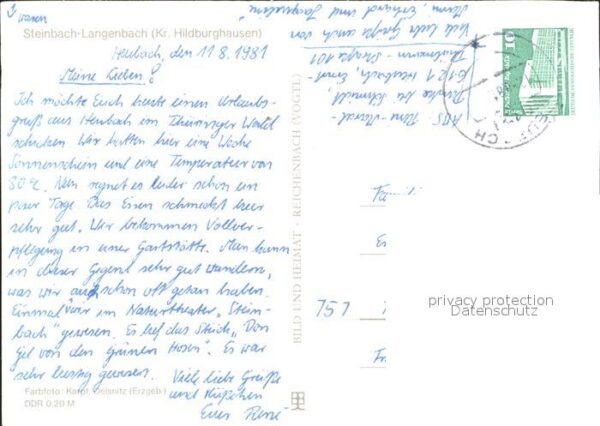 3 waren
Steinbach-Langenbach (Kr. Hildburghausen)
Heubach, den 11.8.1981
Meine Lieben!
Ich möchte Euch heute einen Urlaubs-
gruß aus Heubach im Thüringer Wald
schicken. Wir hatten hier eine Woche
Sonnenschein und eine Temperatur von
30°C. Nun regnet es leider schon ein
paar Tage. Das Essen schmeckt hier
sehr gut. Wir bekommen Vollver-
pflegung in einer Gaststätte. Man kann
in dieser Gegend sehr gut wandern,
was wir auch schon oft getan haben.
Einmal wir im Naturtheater „Stein-
bach" gewesen. Es lief das Stück „Don
Gil von den Grünen Hosen". Es war
sehr lustig gewesen. Viele liebe Grüße
und Küßchen
Euer René
Farbfoto: Karpf, Oelsnitz (Erzgeb.)
DDR 0,20 M
BILD UND HEIMAT · REICHENBACH (VOGTL)
Viele liebe Grüße auch von
und Jaqueline
6121 Heubach, Ernst-
Thälmann-Straße 101
10
DDR
Fa
Es
757
Fr
privacy protection
Datenschutz